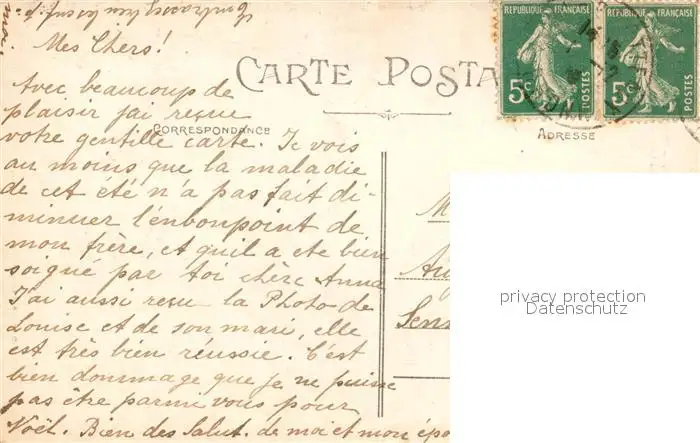 Mes Chers!
Avec beaucoup de
plaisir jai reçue
votre gentille carte. Je vois
au moins que la maladie
de cet été n'a pas fait di-
minuer l'enbonpoint de
mon frère, et quil a ete bien
soigné par toi chère Anna
J'ai aussi reçu la Photo de
Louise et de son mari, elle
est très bien réussie. C'est
bien dommage que je ne puisse
pas être parmi vous pour
Noël. Bien des Salut. de moi et mon epo
moi.
CARTE POSTA
CORRESPONDANCE
ADRESSE
REPUBLIQUE FRANÇAISE
5c
POSTES
REPUBLIQUE FRANÇAISE
5c
POSTES
M
Senn
privacy protection
Datenschutz